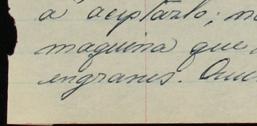 a aceptarlo; n
maquina que
engranes. Qui